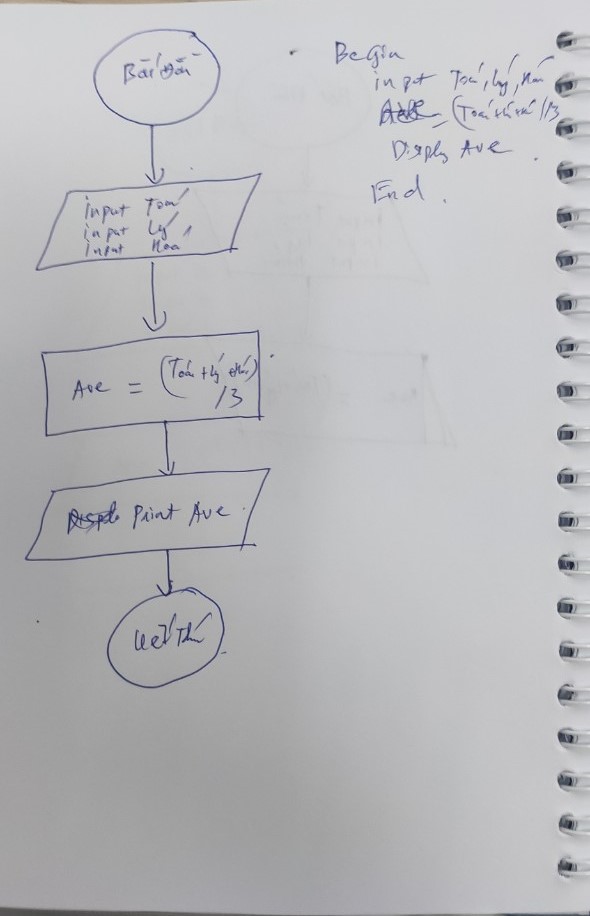 Bắt đầu
input Toán
input Lý
input Hoá
Ave = (Toán + Lý + Hoá)
/3
Print Ave
Kết Thúc
Begin
input Toán, Lý, Hoá
= (Toán + Lí + Hoá)/3
Display Ave
End.